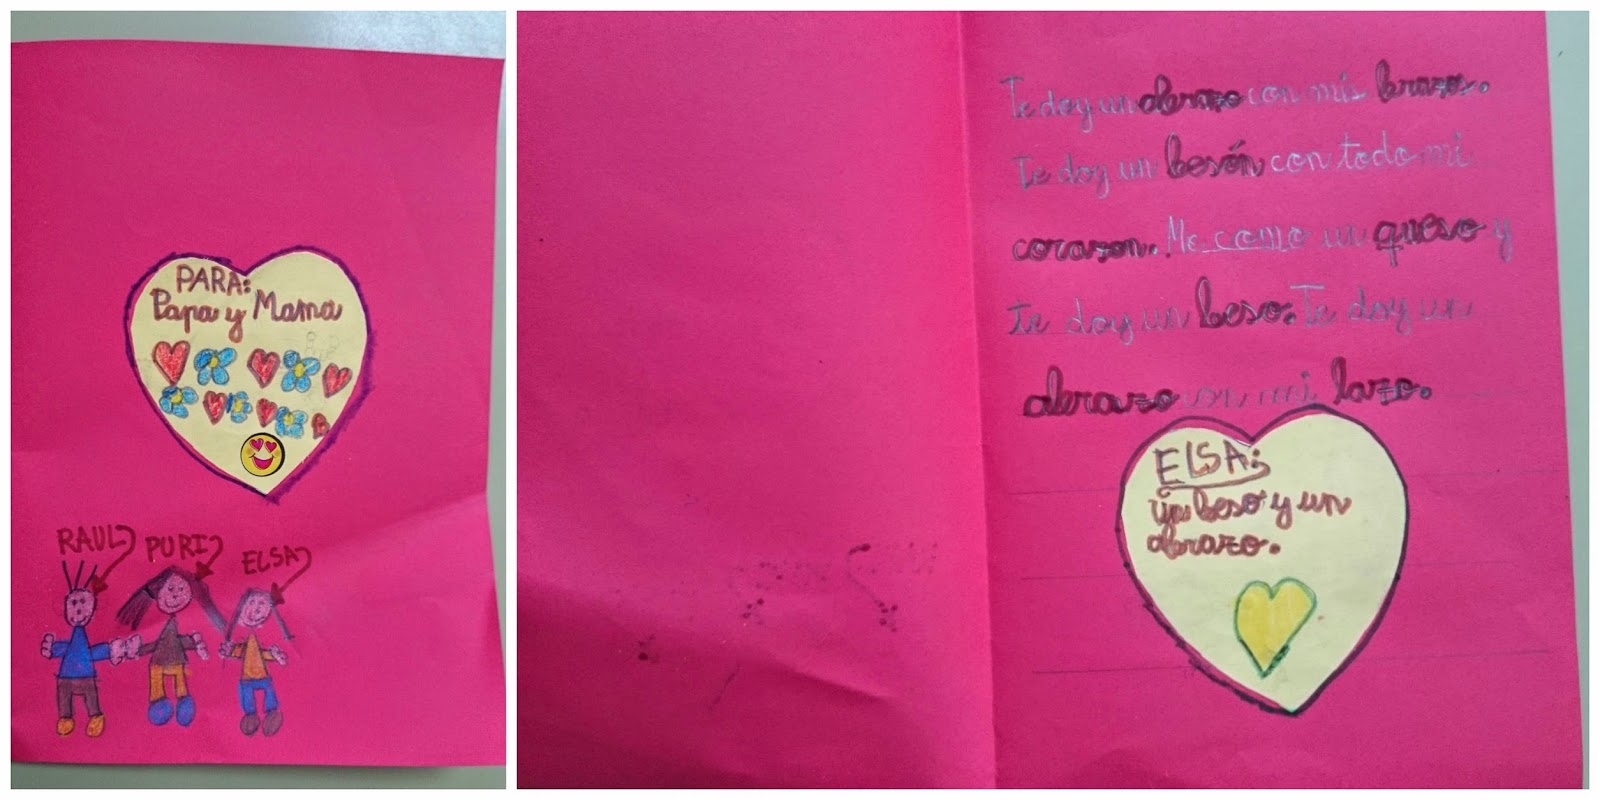 PARA:
Papa y Mama
RAUL PURI ELSA
Te doy un abrazo con mis brazos.
Te doy un besón con todo mi
corazon. Me como un queso y
te doy un beso. Te doy un
abrazo con mi lazo.
ELSA:
beso y un
abrazo.